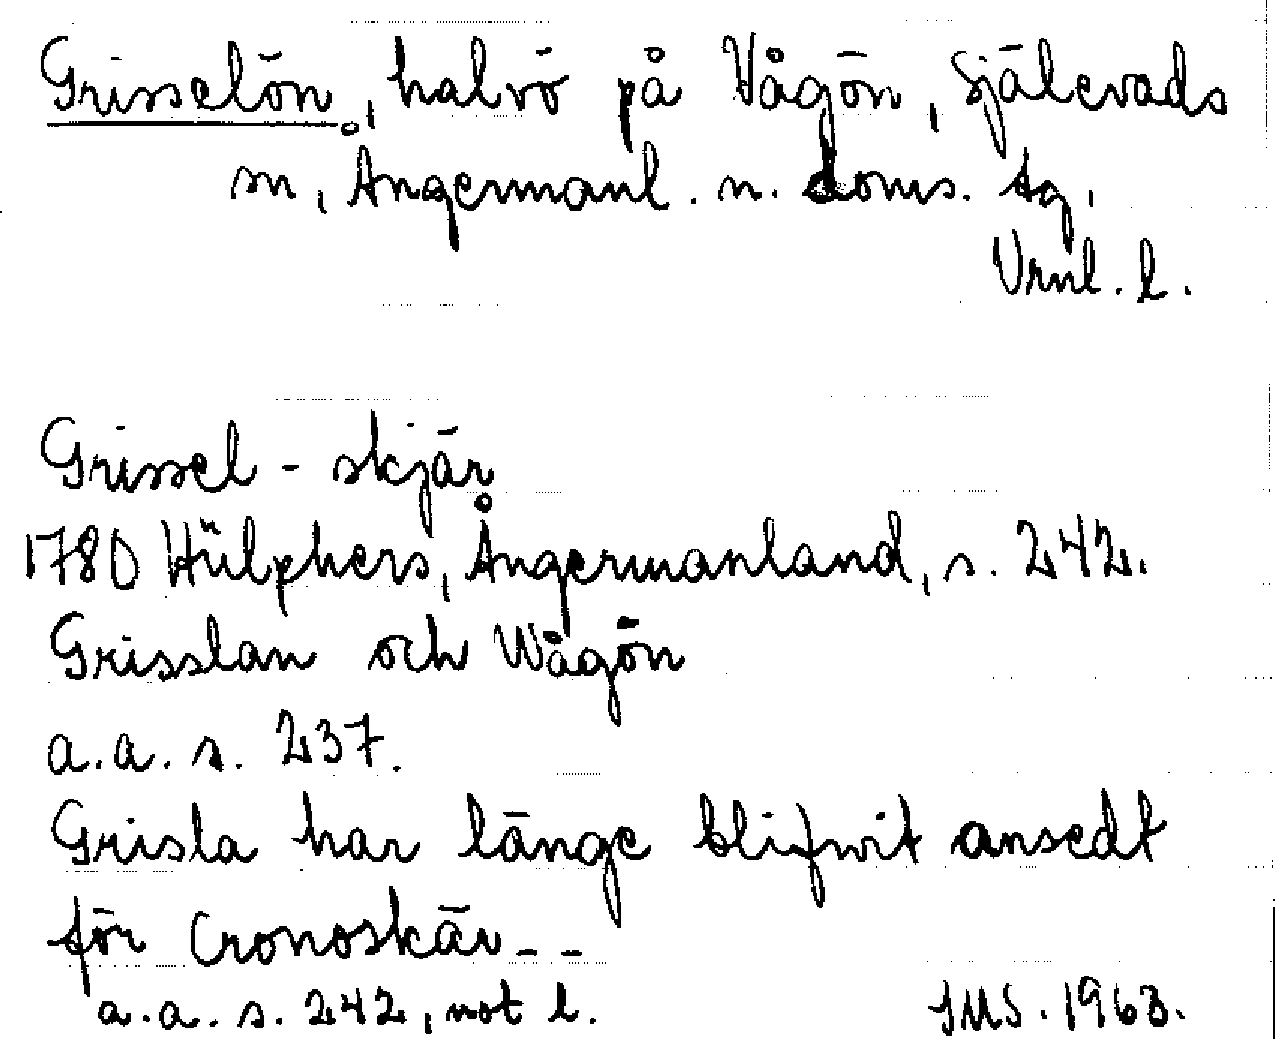 Grisselön, halvö på Vågön, Själevads
sn, Ångermanl. n. doms. tg,
Vrnl. l.
Grissel - skjär
1780 Hülphers, Ångermanland, s. 242.
Grisslan och Wågön
a.a. s. 237.
Grisla har länge blifwit ansedt
för Cronoskär - -
a.a. s. 242, not l.
JMS. 1963.